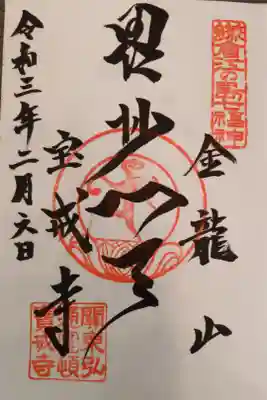 鎌倉江の島七福神
金龍山
毘沙門天
宝戒寺
令和三年二月六日
關東弘
通圓頓
寶戒寺